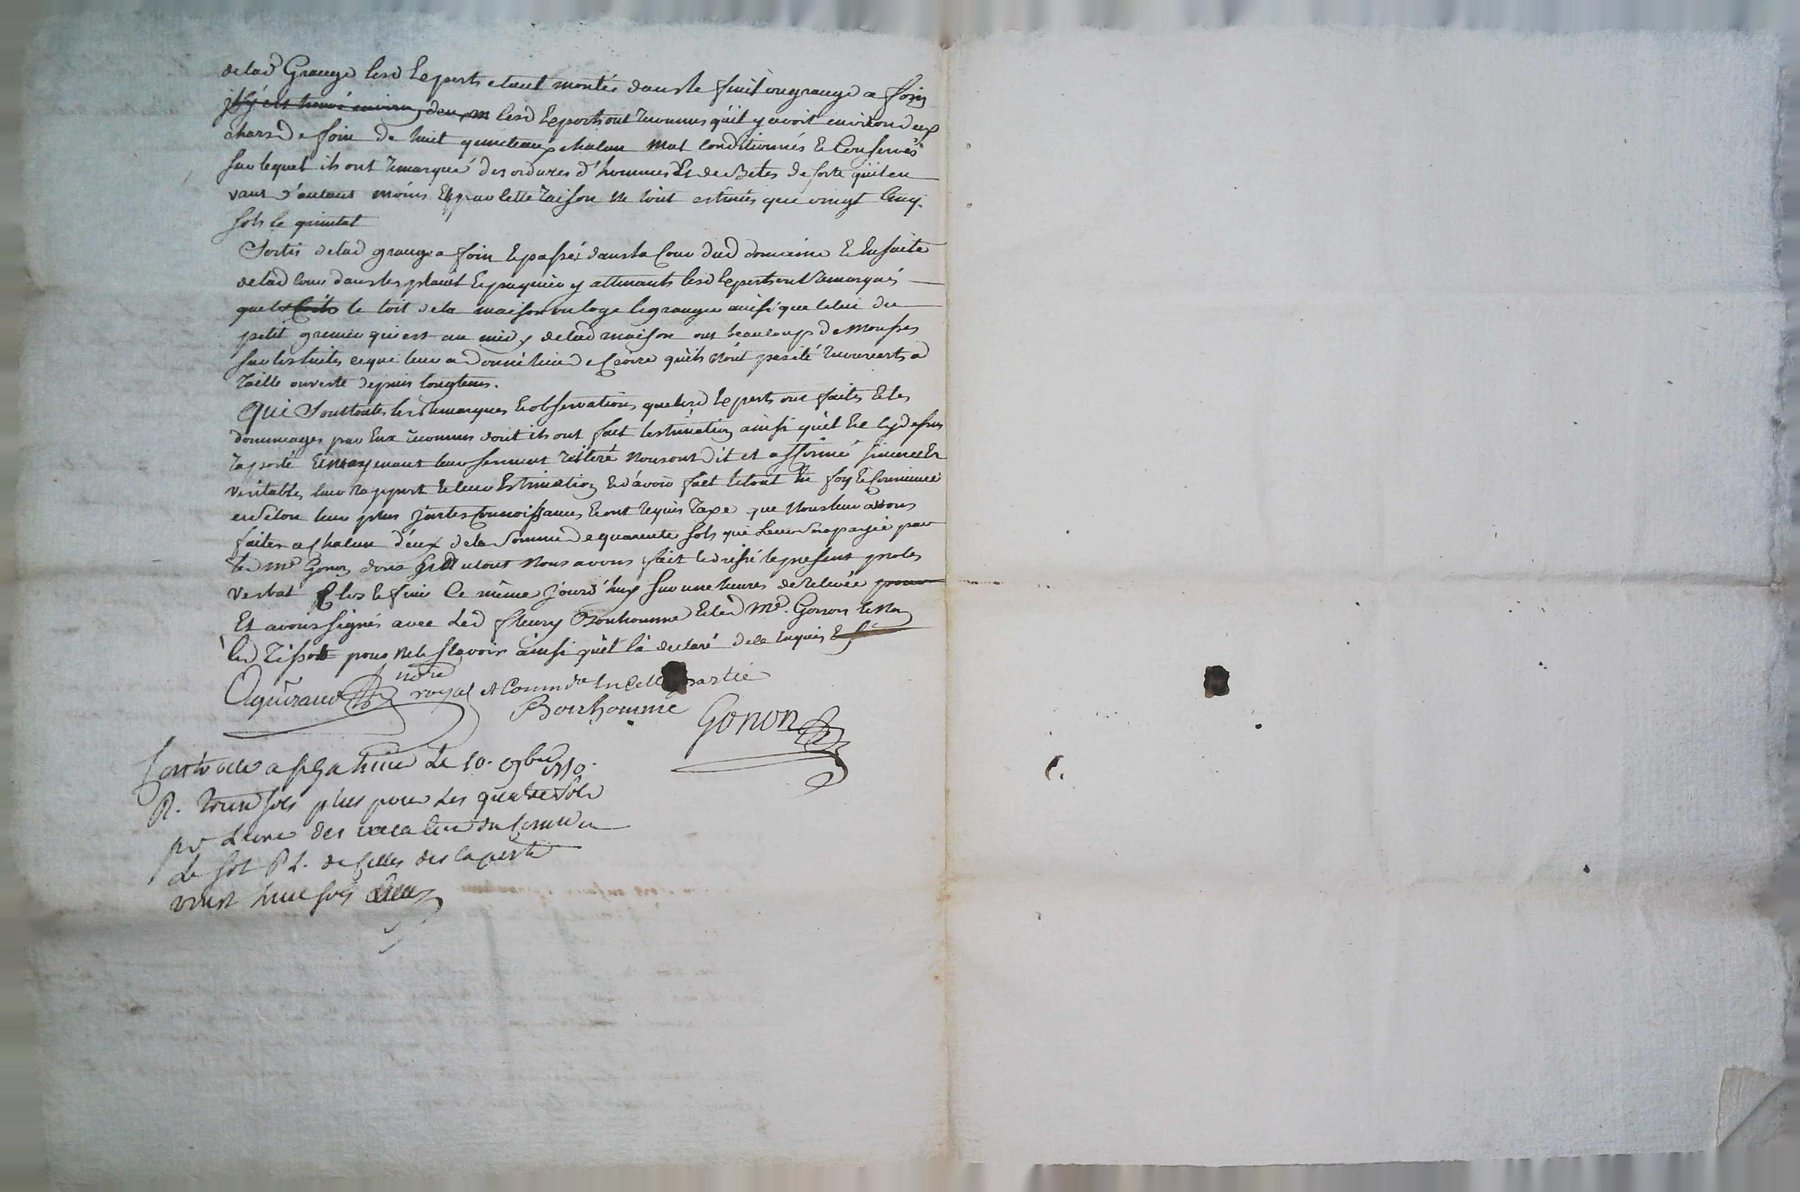 de lad Grange lesd Experts etant montés dans le finil ou grange a foin
il s'y est trouvé environ deux m lesd Experts ont reconnus qu'il y avoit environ deux
chars de foin de huit quinteaux chalun mal conditionnés et Conservés
sur lequel ils ont remarqué des ordures d'hommes Et de Betes de sorte qu'il en
vaut d'autant moins Et par cette raison ne l'ont estimés que vingt cinq
sols le quintal
Sortis de lad grange a foin et passés dans la Cour dud domaine et Ensuite
de lad Cour dans les plants et y attenants lesd Experts ont remarqués
que les toits le toit de la maison ou loge le granger ainsi que celui du
petit grenier qui est au midy de lad maison ont beaucoup de Mousses
sur les tuiles ce que leur a donné lieu de croire qu'ils n'ont pas été recouverts a
taille ouverte depuis longtems.
Qui sont toutes les remarques et observations que lesd Experts ont faites et les
dommages par Eux reconnus dont ils ont fait l'estimation ainsi qu'il Est cy dessus
raporté Et moyenant leur serment réitéré Nous ont dit et affirmé sincere Et
veritable leur rapport et leur Estimation et d'avoir fait le tout En foy et Consience
et selon leur plus justes connoissances et ont requis taxe que Nous leur avons
faites a chalun d'eux de la somme de quarente sols qui leur sera payée par
led Me Gonon dont et du tout Nous avons fait et dressé le present proces
verbal Clos et fini Ce même jourd'huy sur une heures de relevée pour
Et avons signés avec led fleury Bonhomme et led Me. Gonon et Non
led Tissot pour ne le sçavoir ainsi qu'il l'a declaré de ce Enquis
Aguiraud nore royal et Commre En cette partie
Bonhomme Gonon
Controllé a le 10. 9bre
R. sols plus pour les quatre sols
pr Livre des
Le sol P L. de celles des experts
vingt huit sols